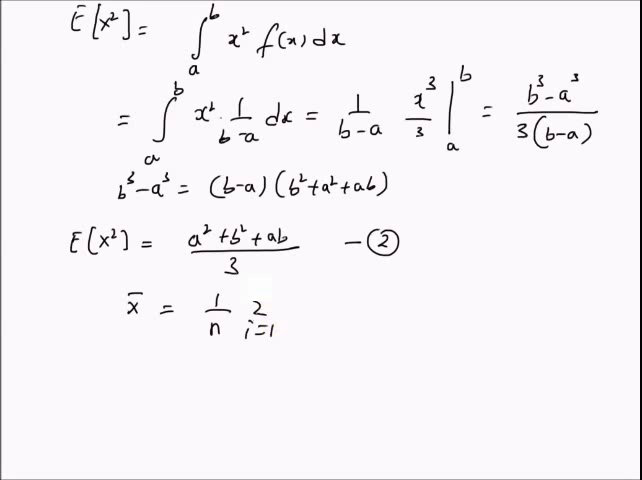 E[x²] = ∫ₐᵇ x² f(x) dx
= ∫ₐᵇ x² · 1/(b-a) dx = 1/(b-a) x³/3 |ₐᵇ = (b³-a³)/(3(b-a))
b³-a³ = (b-a) (b²+a²+ab)
E[x²] = (a²+b²+ab)/3 — ②
x̄ = 1/n 2 i=1